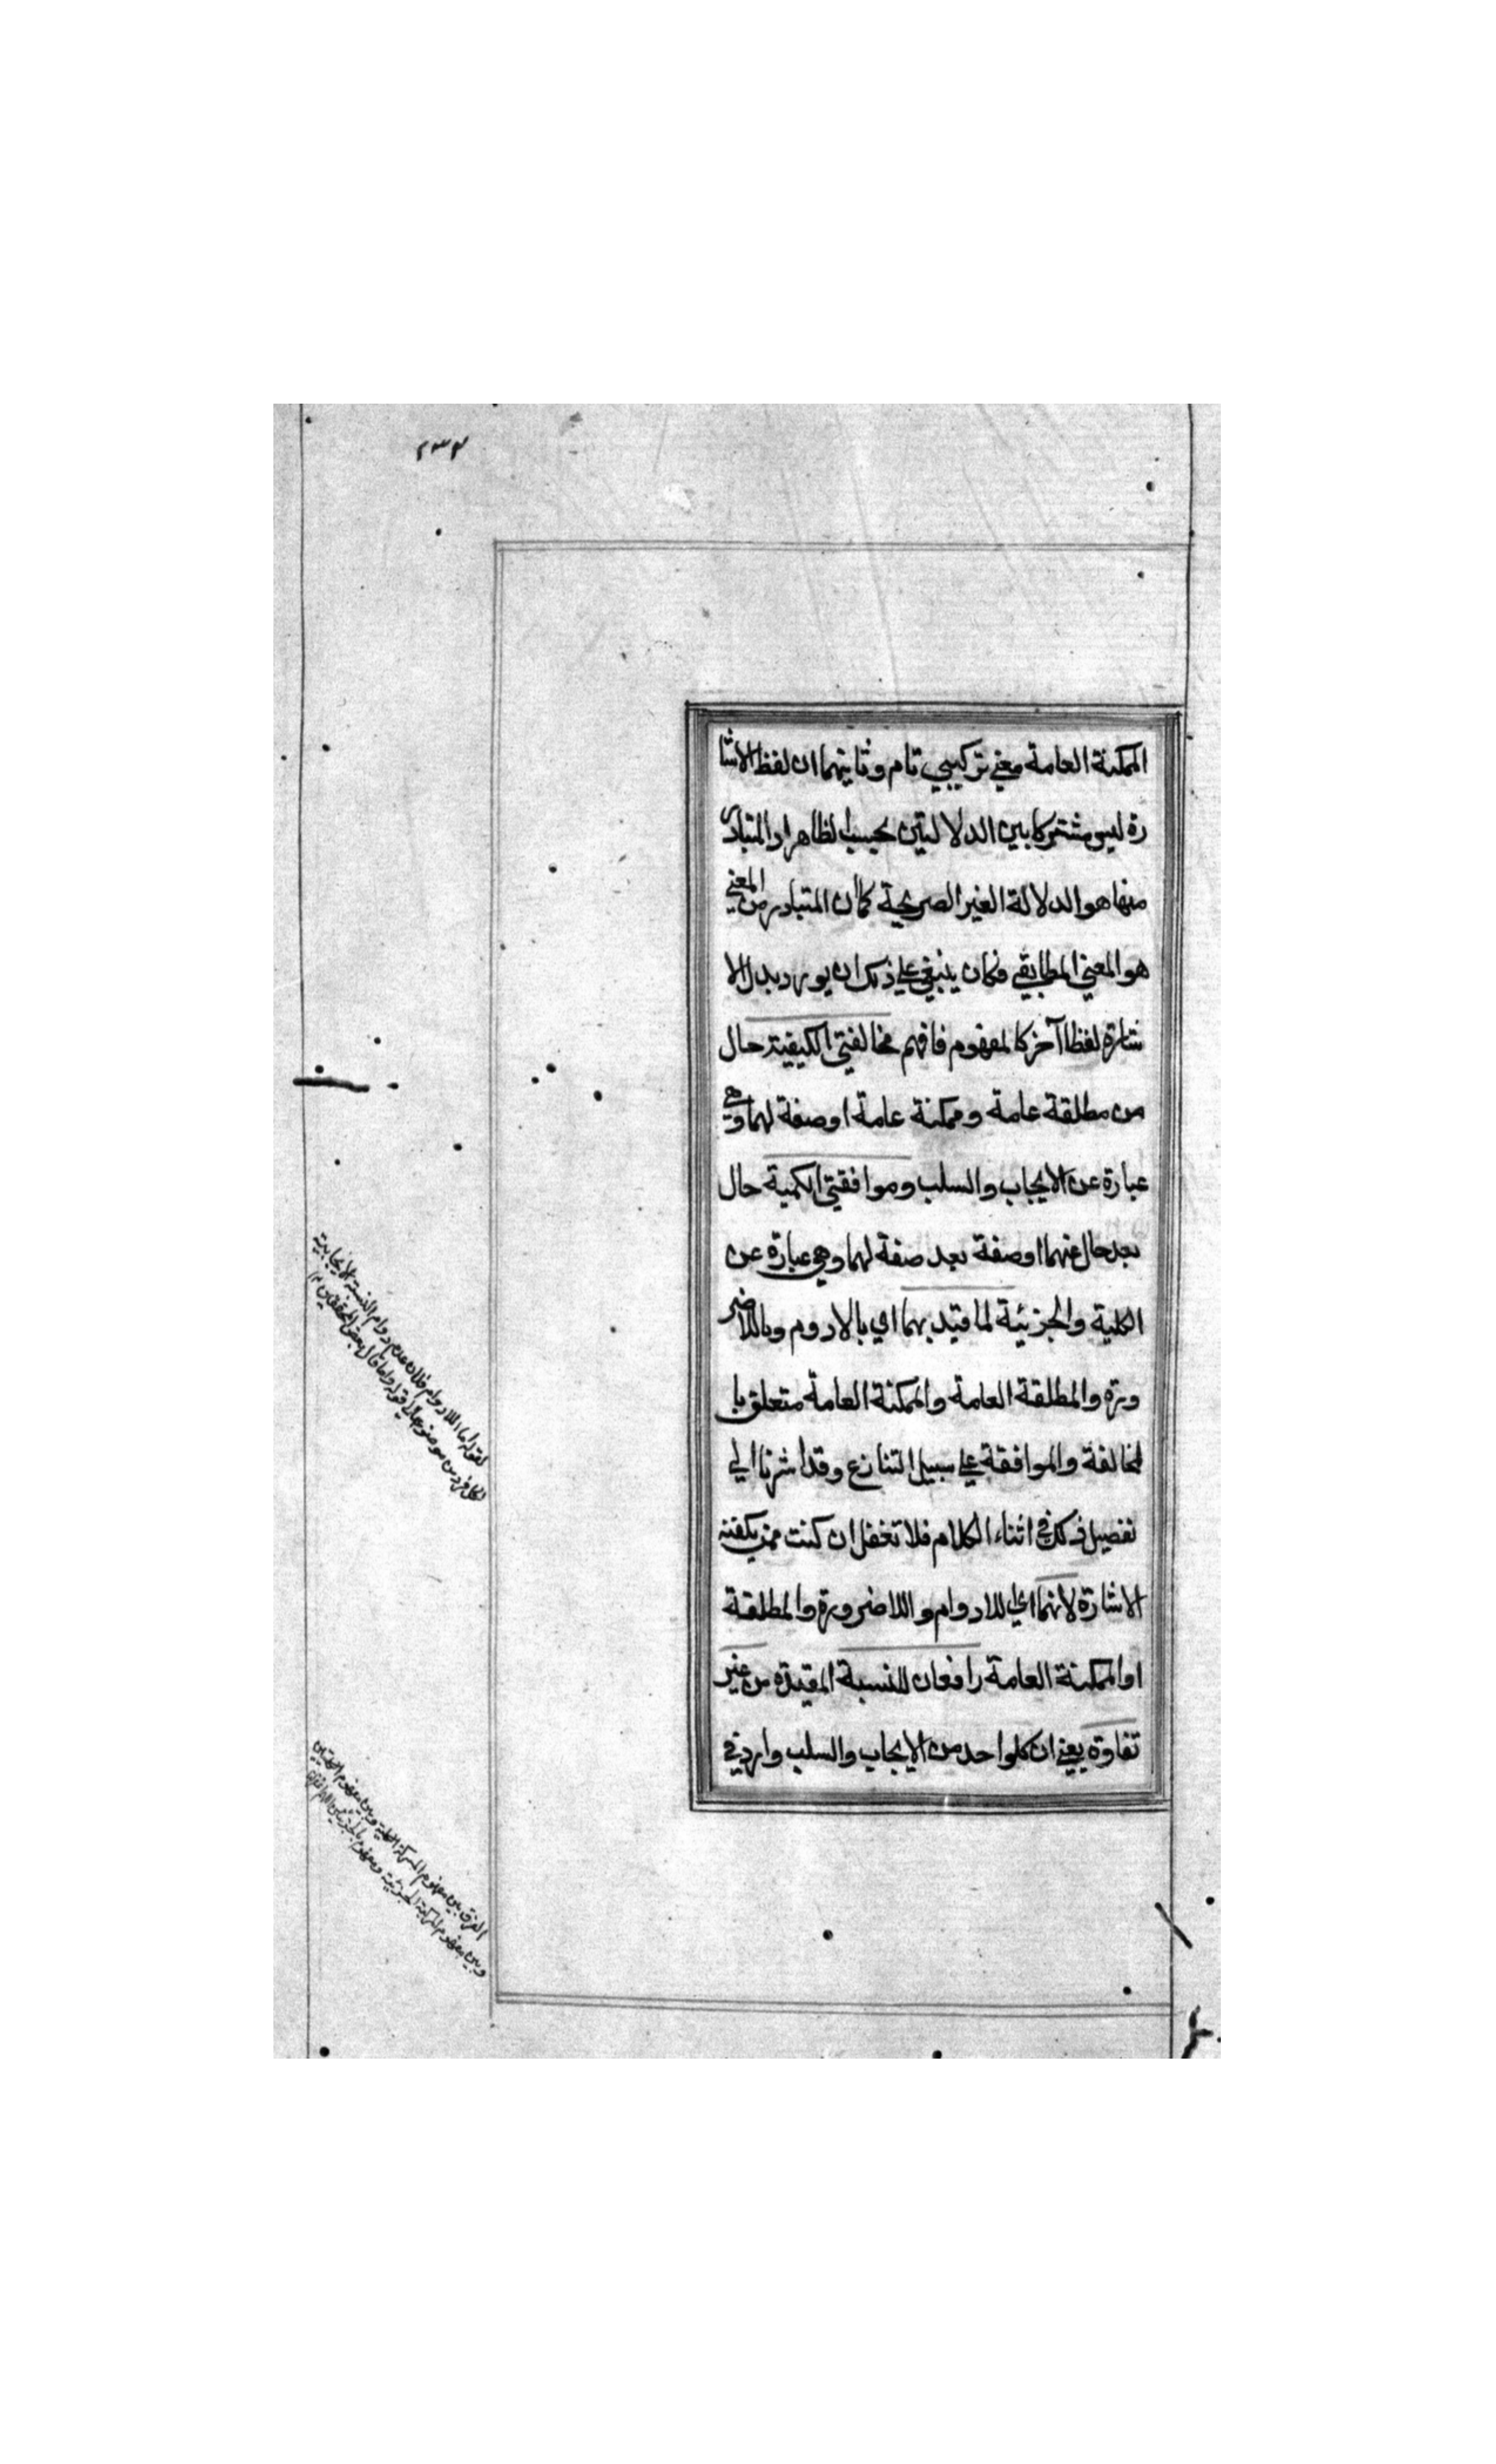 ٢٣٣
الممكنة العامة معني تركيبي تام وثانيهما ان لفظ الاشا
رة ليس مشتركا بين الدلالتين بحسب الظاهر اذ المتبادر
منها هو الدلالة الغير الصريحة كما ان المتبادر من المعني
هو المعني المطابقي فكان ينبغي علي ذلك ان يورد بدل الا
شارة لفظا آخر كالمفهوم فافهم مخالفتي الكيفية حال
من مطلقة عامة وممكنة عامة او صفة لهما وهي
عبارة عن الايجاب والسلب وموافقتي الكمية حال
بعد حال عنهما او صفة بعد صفة لهما وهي عبارة عن
الكلية والجزئية لما قيد بهما اي بالادوم وباللاضر
ورة والمطلقة العامة والممكنة العامة متعلق با
لمخالفة والموافقة علي سبيل التنازع وقد اشرنا الي
تفصيل ذلك في اثناء الكلام فلا تغفل ان كنت ممن يكفنه
الاشارة لانهما اي للادوام واللاضرورة والمطلقة
او الممكنة العامة رافعان للنسبة المقيدة من غير
تفاوة يعني ان كلواحد من الايجاب والسلب وارد في
لقوله اما اللادوام فلان عدم دوام النسبة الايجابية
لكل فرد من موضوع
الفرق بين مفهوم المركبة الكلية وبين مفهوم
وبين مفهوم المركبة الجزئية ومفهوم